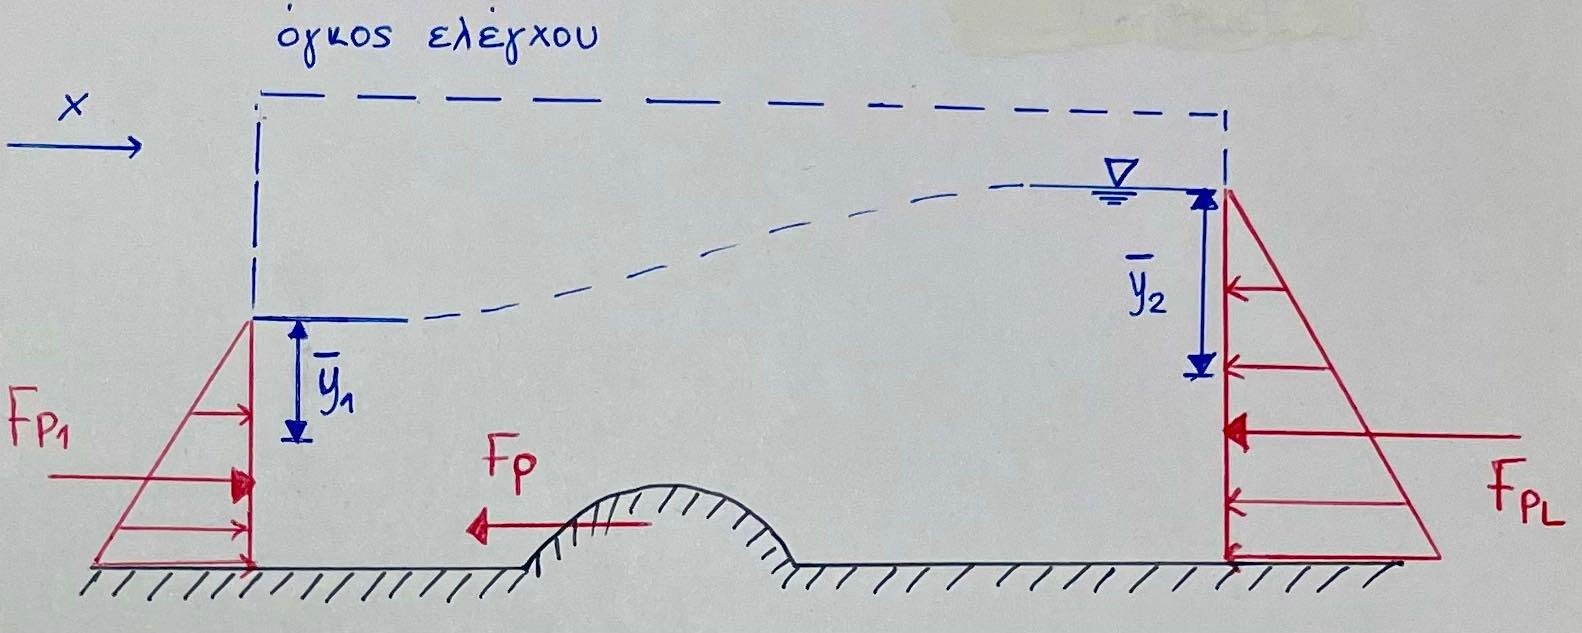 όγκος ελέγχου
x
ȳ₂
ȳ₁
F_P₁
F_P
F_PL